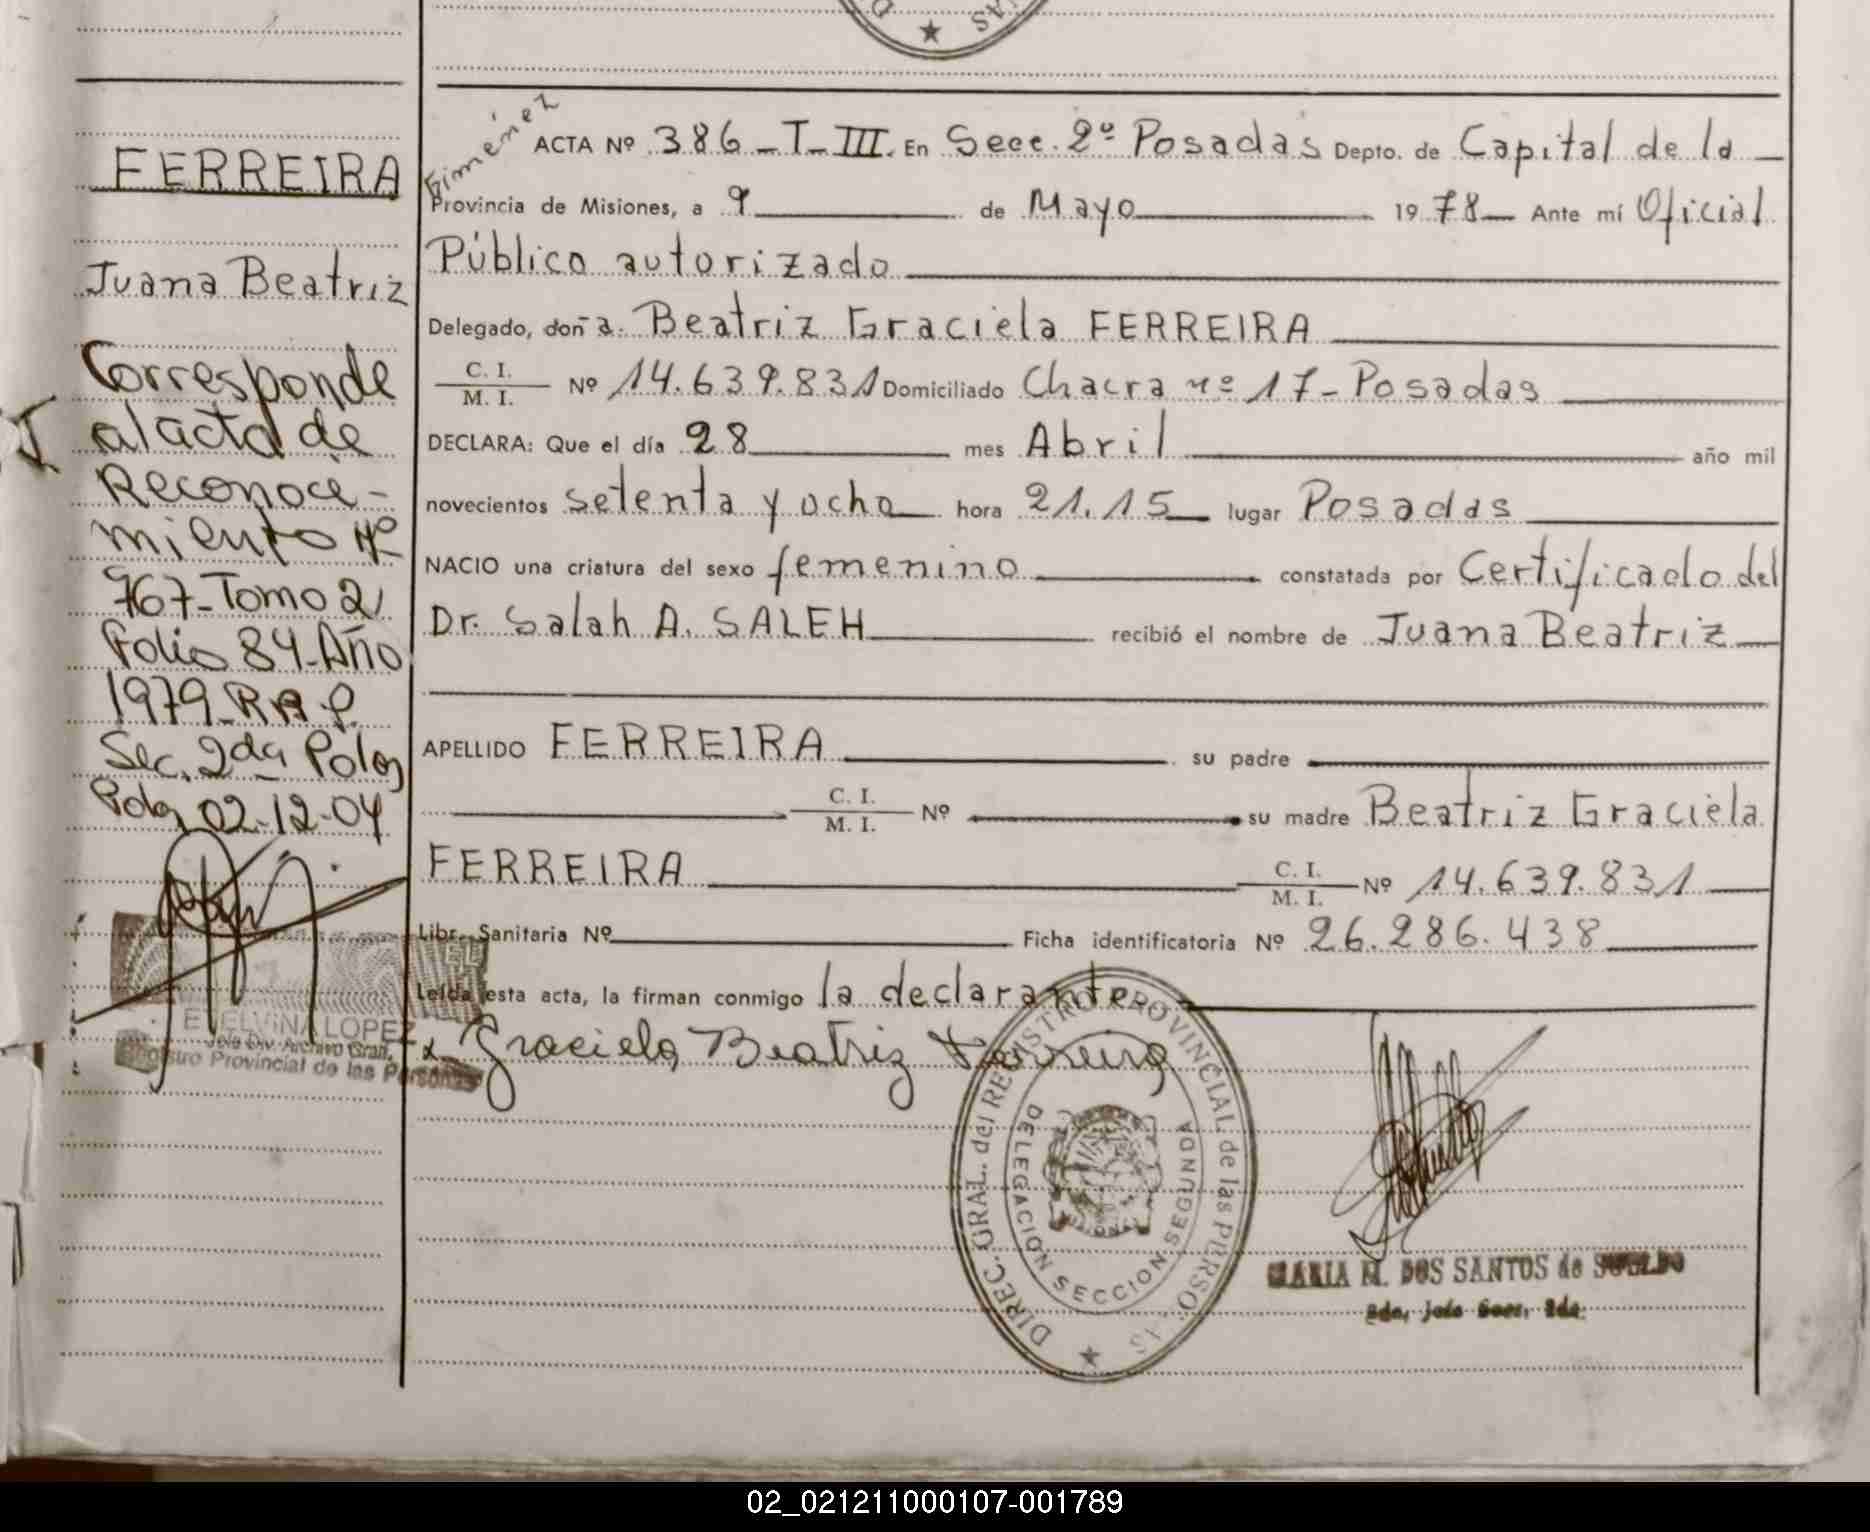 FERREIRA
Juana Beatriz
Corresponde
al acta de
Reconoci-
miento Nº
767-Tomo 2
Folio 84-Año
1979-R.A.P.
Sec. 2da Pdas
Pdas 02-12-04
EVELVINA LOPEZ
Jefe Div. Archivo Gral.
Registro Provincial de las Personas
Gimenez
ACTA Nº 386-T-III. En Secc. 2º Posadas Depto. de Capital de la
Provincia de Misiones, a 9 de Mayo 1978 Ante mí Oficial
Público autorizado
Delegado, doña. Beatriz Graciela FERREIRA
C. I. / M. I. Nº 14.639.831 Domiciliado Chacra nº 17-Posadas
DECLARA: Que el día 28 mes Abril año mil
novecientos setenta y ocho hora 21.15 lugar Posadas
NACIO una criatura del sexo femenino constatada por Certificado del
Dr. Salah A. SALEH recibió el nombre de Juana Beatriz
APELLIDO FERREIRA su padre
C. I. / M. I. Nº su madre Beatriz Graciela
FERREIRA C. I. / M. I. Nº 14.639.831
Libr. Sanitaria Nº Ficha identificatoria Nº 26.286.438
Leída esta acta, la firman conmigo la declarante
x Graciela Beatriz Ferreira
DIREC. GRAL. del REGISTRO PROVINCIAL de las PERSONAS
DELEGACION SECCION SEGUNDA
MARIA M. DOS SANTOS de SUELDO
2da. Jefe Secc. 2da.
02_021211000107-001789